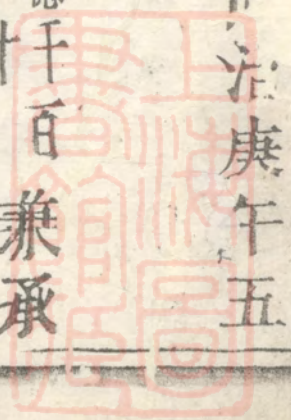 治庚午五
仟百兼承
上海圖
書館藏